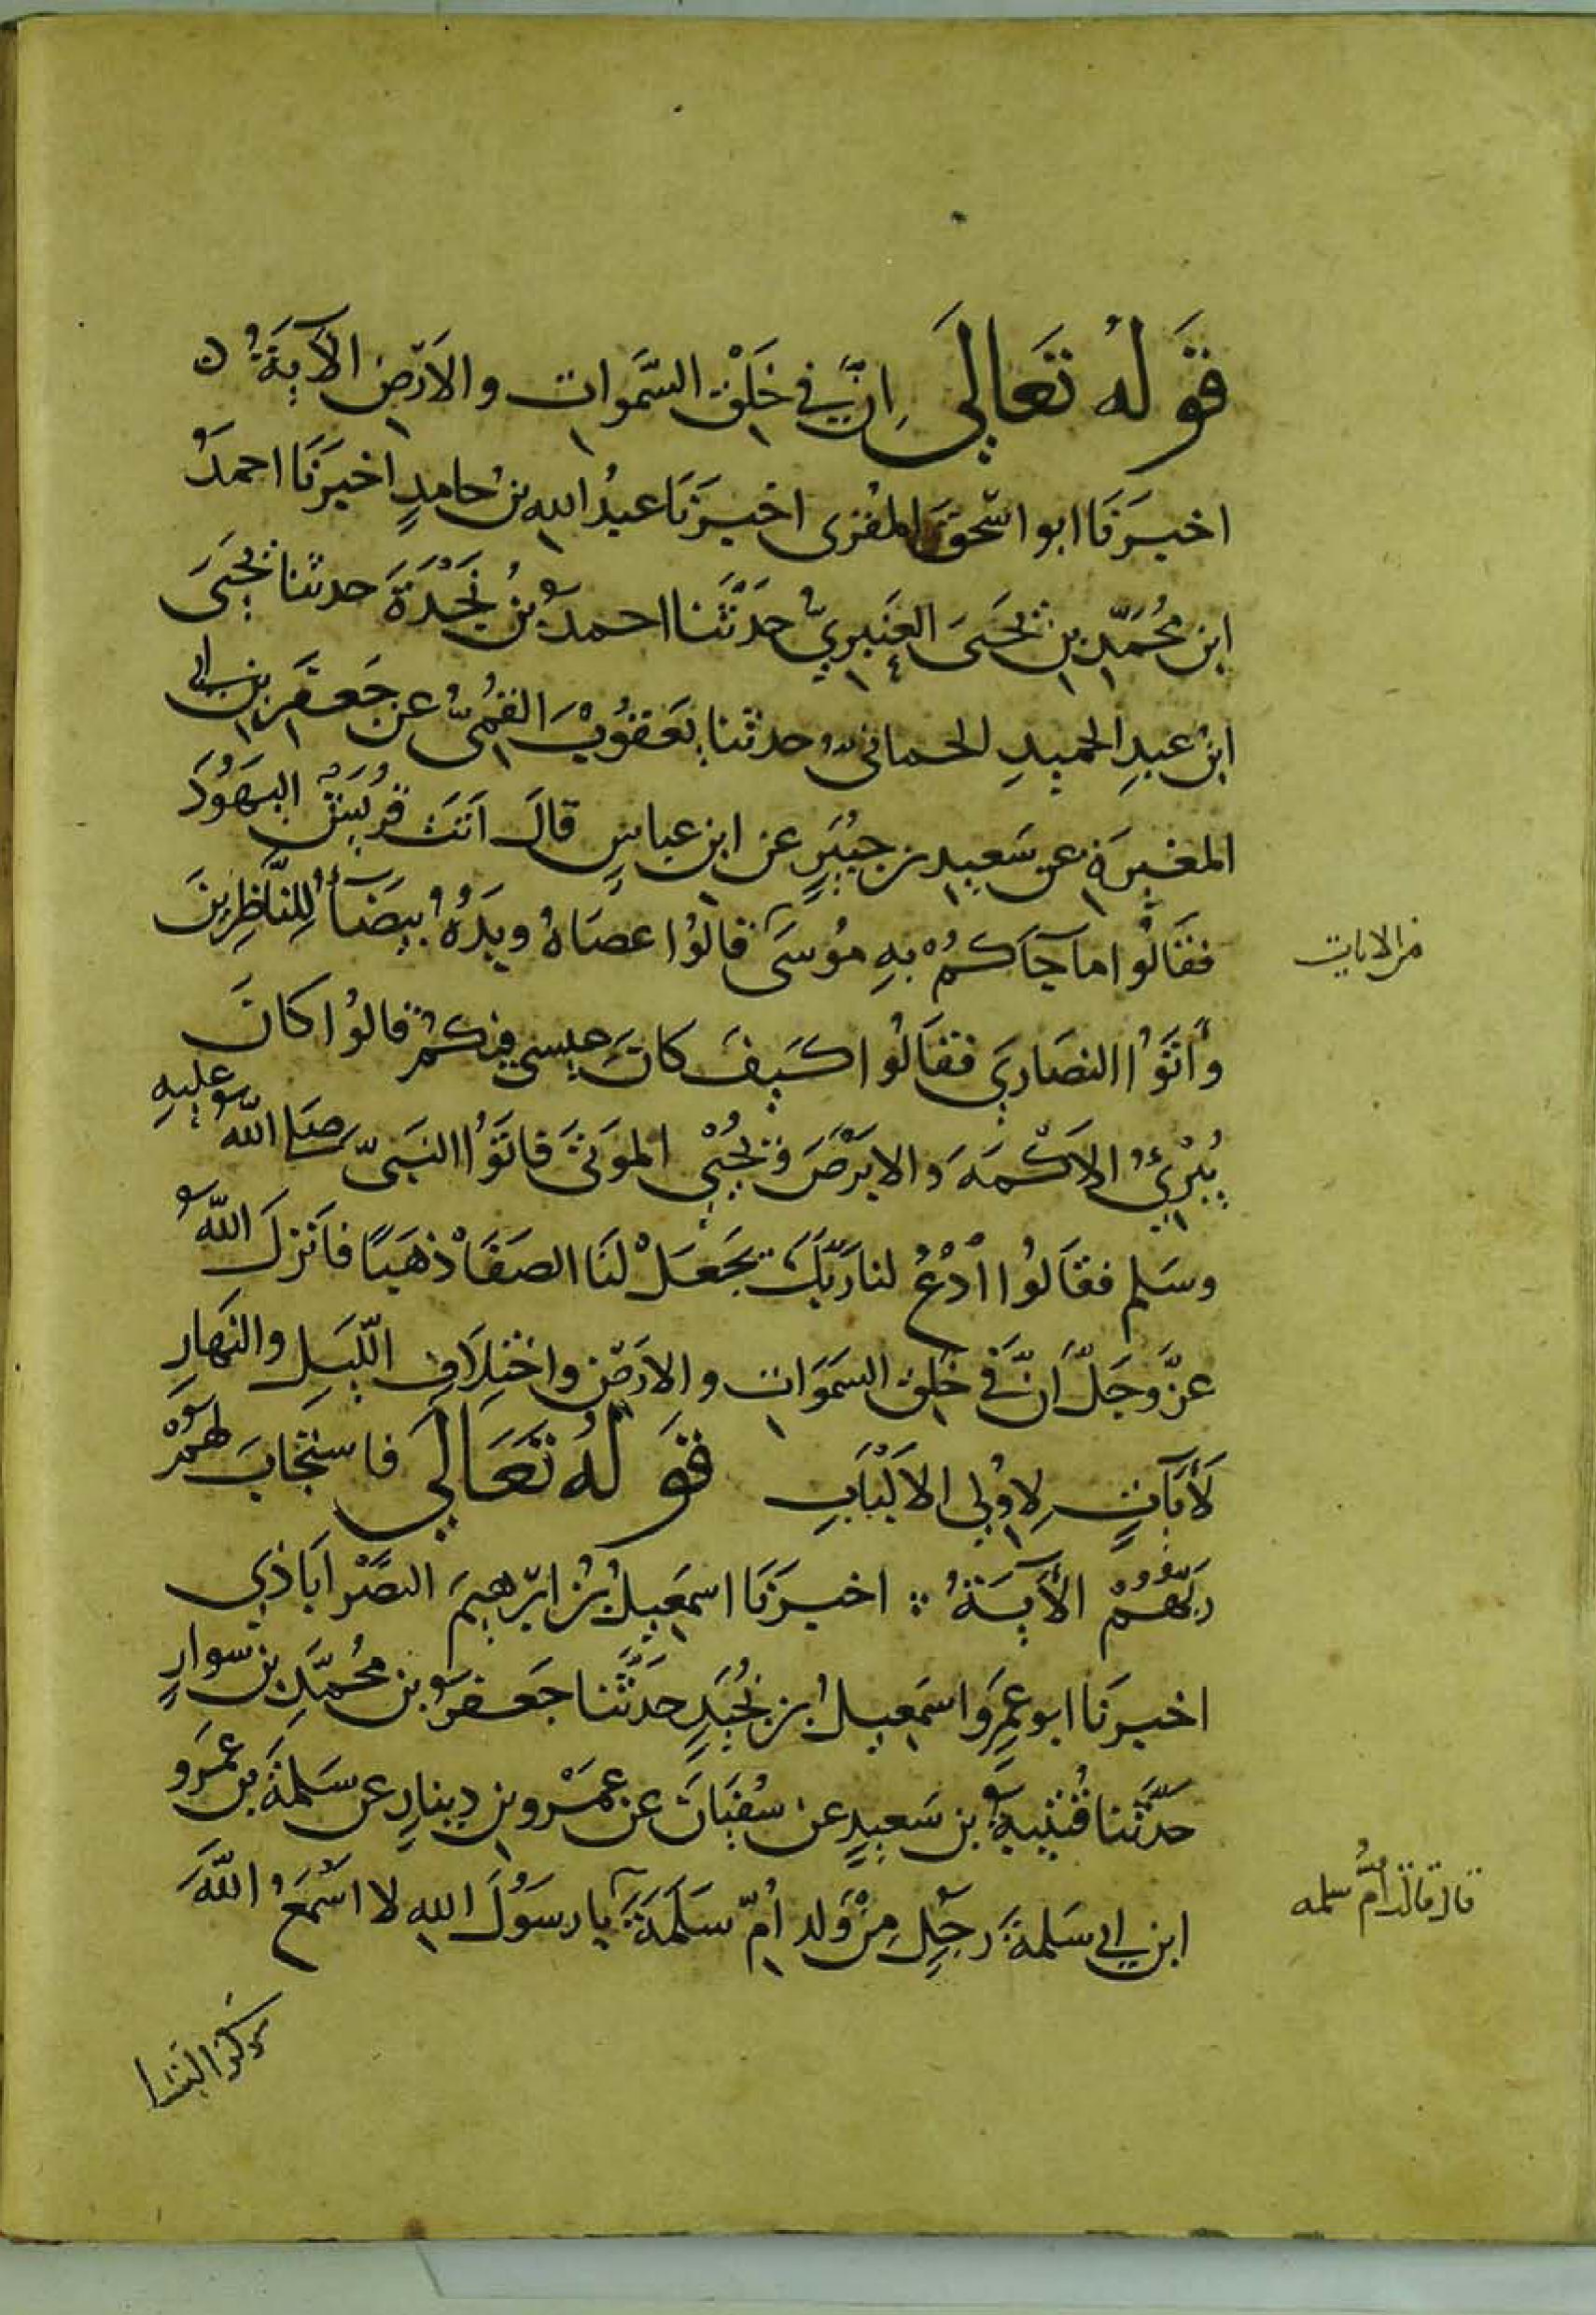 قَوْلهُ تَعَالَى اِنَّ فِي خَلْقِ السَّمَوَات والاَرْضِ الآيَةَ
اخبرَنَا ابو اسْحقَ المقرى اخبرَنَا عبدُ اللهِ بنُ حامدٍ اخبرَنَا احمدُ
ابن مُحَمَّدِ بنِ يَحْيَى العَنْبَريّ حَدَّثَنا احمدُ بنُ نَجْدَةَ حدثنا يَحْيَى
ابنُ عبدِ الحميدِ الحمانيّ حدثنا يَعْقُوبُ القُمّيّ عن جَعفَرِ بنِ ابي
المغيرة عن سَعيدِ بنِ جُبَيْرٍ عن ابن عباسٍ قالَ اَتَتْ قُرَيْشٌ اليَهُودَ
فقَالُوا ما جآكُمْ بِهِ مُوسَى قالُوا عصَاهُ ويَدُهُ بيضَآءُ لِلنَّاظِرِينَ
من الايات
وأتَوُا النصَارَي فقالُوا كَيفَ كانَ عيسي فيكُمْ قالُوا كانَ
يُبْرِئُ الاَكْمَهَ والابرَصَ ويُحْيِي الموتَى فاتَوُا النبيّ صَلى اللهُ عليهِ
وسَلم فقالُوا ادْعُ لنا رَبَّكَ يَجعَلْ لَنَا الصَفَا ذهَبًا فاَنزلَ اللهُ
عزَّ وجَلَّ اِنَّ في خَلْقِ السَمَوَات والارْضِ واخْتِلاَفِ اللّيلِ والنَهارِ
لآيَاتٍ لِاوُلِي الاَلْبَابِ قَوْلهُ تَعَالَي فاستَجَابَ لَهُمْ
رَبّهُمْ الآيَةُ اخبرَنَا اسمَعيلُ بنُ ابرهيمَ النصْراَباذي
اخبرَنَا ابو عَمرٍو اسمَعيلُ ابنُ نُجَيْدٍ حَدَّثَنا جَعفرُ بن مُحَمَّدِ بن سوارٍ
حَدَّثَنا قُتَيْبَةُ بن سَعيدٍ عن سُفيَانَ عن عَمْرِو بنِ دينارٍ عن سَلمَةَ بن عَمرو
ابن ابي سَلمةَ رجلٍ مِنْ وَلد اُمّ سَلَمَةَ يا رسُولَ اللهِ لا اَسْمَعُ اللهَ
قال قالت أُمُّ سلمه
ذكر النسا